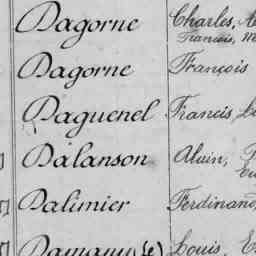 Dagorne Charles,
Francois,
Dagorne François
Daguenel Francis,
Dalanson Aluin,
Dalimier Ferdinand,
Damany (e) Louis,